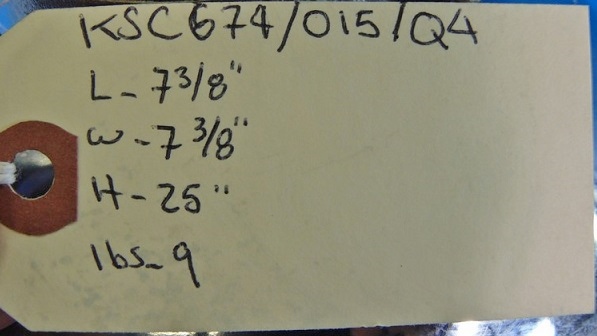 KSC674/015/Q4
L - 7 3/8"
W - 7 3/8"
H - 25"
lbs - 9